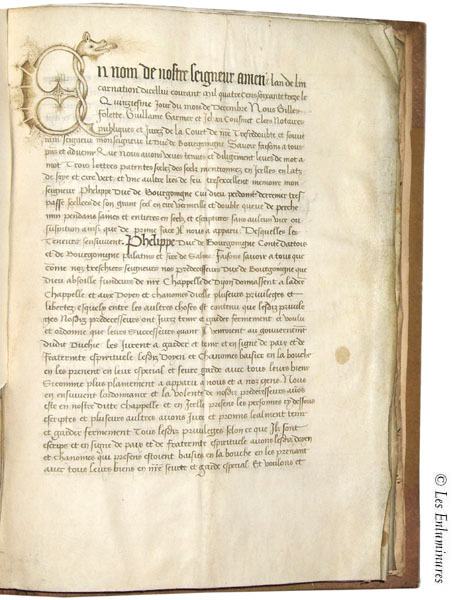 En nom de nostre seigneur amen lan de lin
carnation dicelluy courant mil quatre cens soixante treze le
Quinziesme Jour du mois de Decembre Nous Gilles
Folette Guillame Garnier et Jehan Cousinet Clers Notaires
publiques et Jurez de la Court de
seigneur monseigneur le Duc de Bourgoingne Savoir faisons a tous
que Nous avons veues tenues et diligemment leues de mot a
mot Trois lettres patentes
de soye et cire vert et une aultre lres de feu tresexcellent memoire mon
seigneur Phelippe Duc de Bourgoingne Cui dieu perdoint derrenier tres
passe seellees de son grant seel en cire vermeille et double queue de perche
min pendans saines et entieres en seelz et escriptures sans aulcun vice ou
suspition ainsi que de prime face Il nous a apparu Desquelles les
Teneurs sensuivent Phelippe Duc de Bourgoingne Conte Dartois
et de Bourgoingne palatins et sire de Salins Faisons savoir a tous que
come noz treschiers seigneurs noz predecesseurs Duc de Bourgoingne que
Dieu absoille fundeurs de nre Chappelle de Dijon donnassent a ladce
Chappelle et aux Doyen et chanoines dicelle plusieurs privileges et
libertez esquelx entre les aultres choses est contenu que lesdiz privile
ges Nosdiz predecesseurs ont Jurez tenir et garder fermement et voulu
et ordonne que leurs Successeurs quant Ilz venront au gouvernement
dudit Duchie les Jurent a garder et tenir et en signe de paix et de
fraternite espirituelle lesdiz Doyen et Chanoines baisier en la bouche
en les prenent en leur especial et seure garde avec tous leurs biens
Sicomme plus plainement a apparu a nous et a noz gens Nous
en ensuivent lordonnance et la volente de nosdiz predecesseurs avons
este en nostre dicte chappelle et en Icelle presens les personnes cy dessoubz
escriptes et plusieurs aultres avons Jure et promis lealment tenir
et garder fermement Tous lesdiz privileges selon ce que Ilz sont
escripz et en signe de paix et de fraternite espirituele avons lesdiz doyen
et chanoines qui presens estoient baisiez en la bouche en les prenant
avec tous leurs biens en nre seurte et garde especial Et voulons et
© Les Enluminures